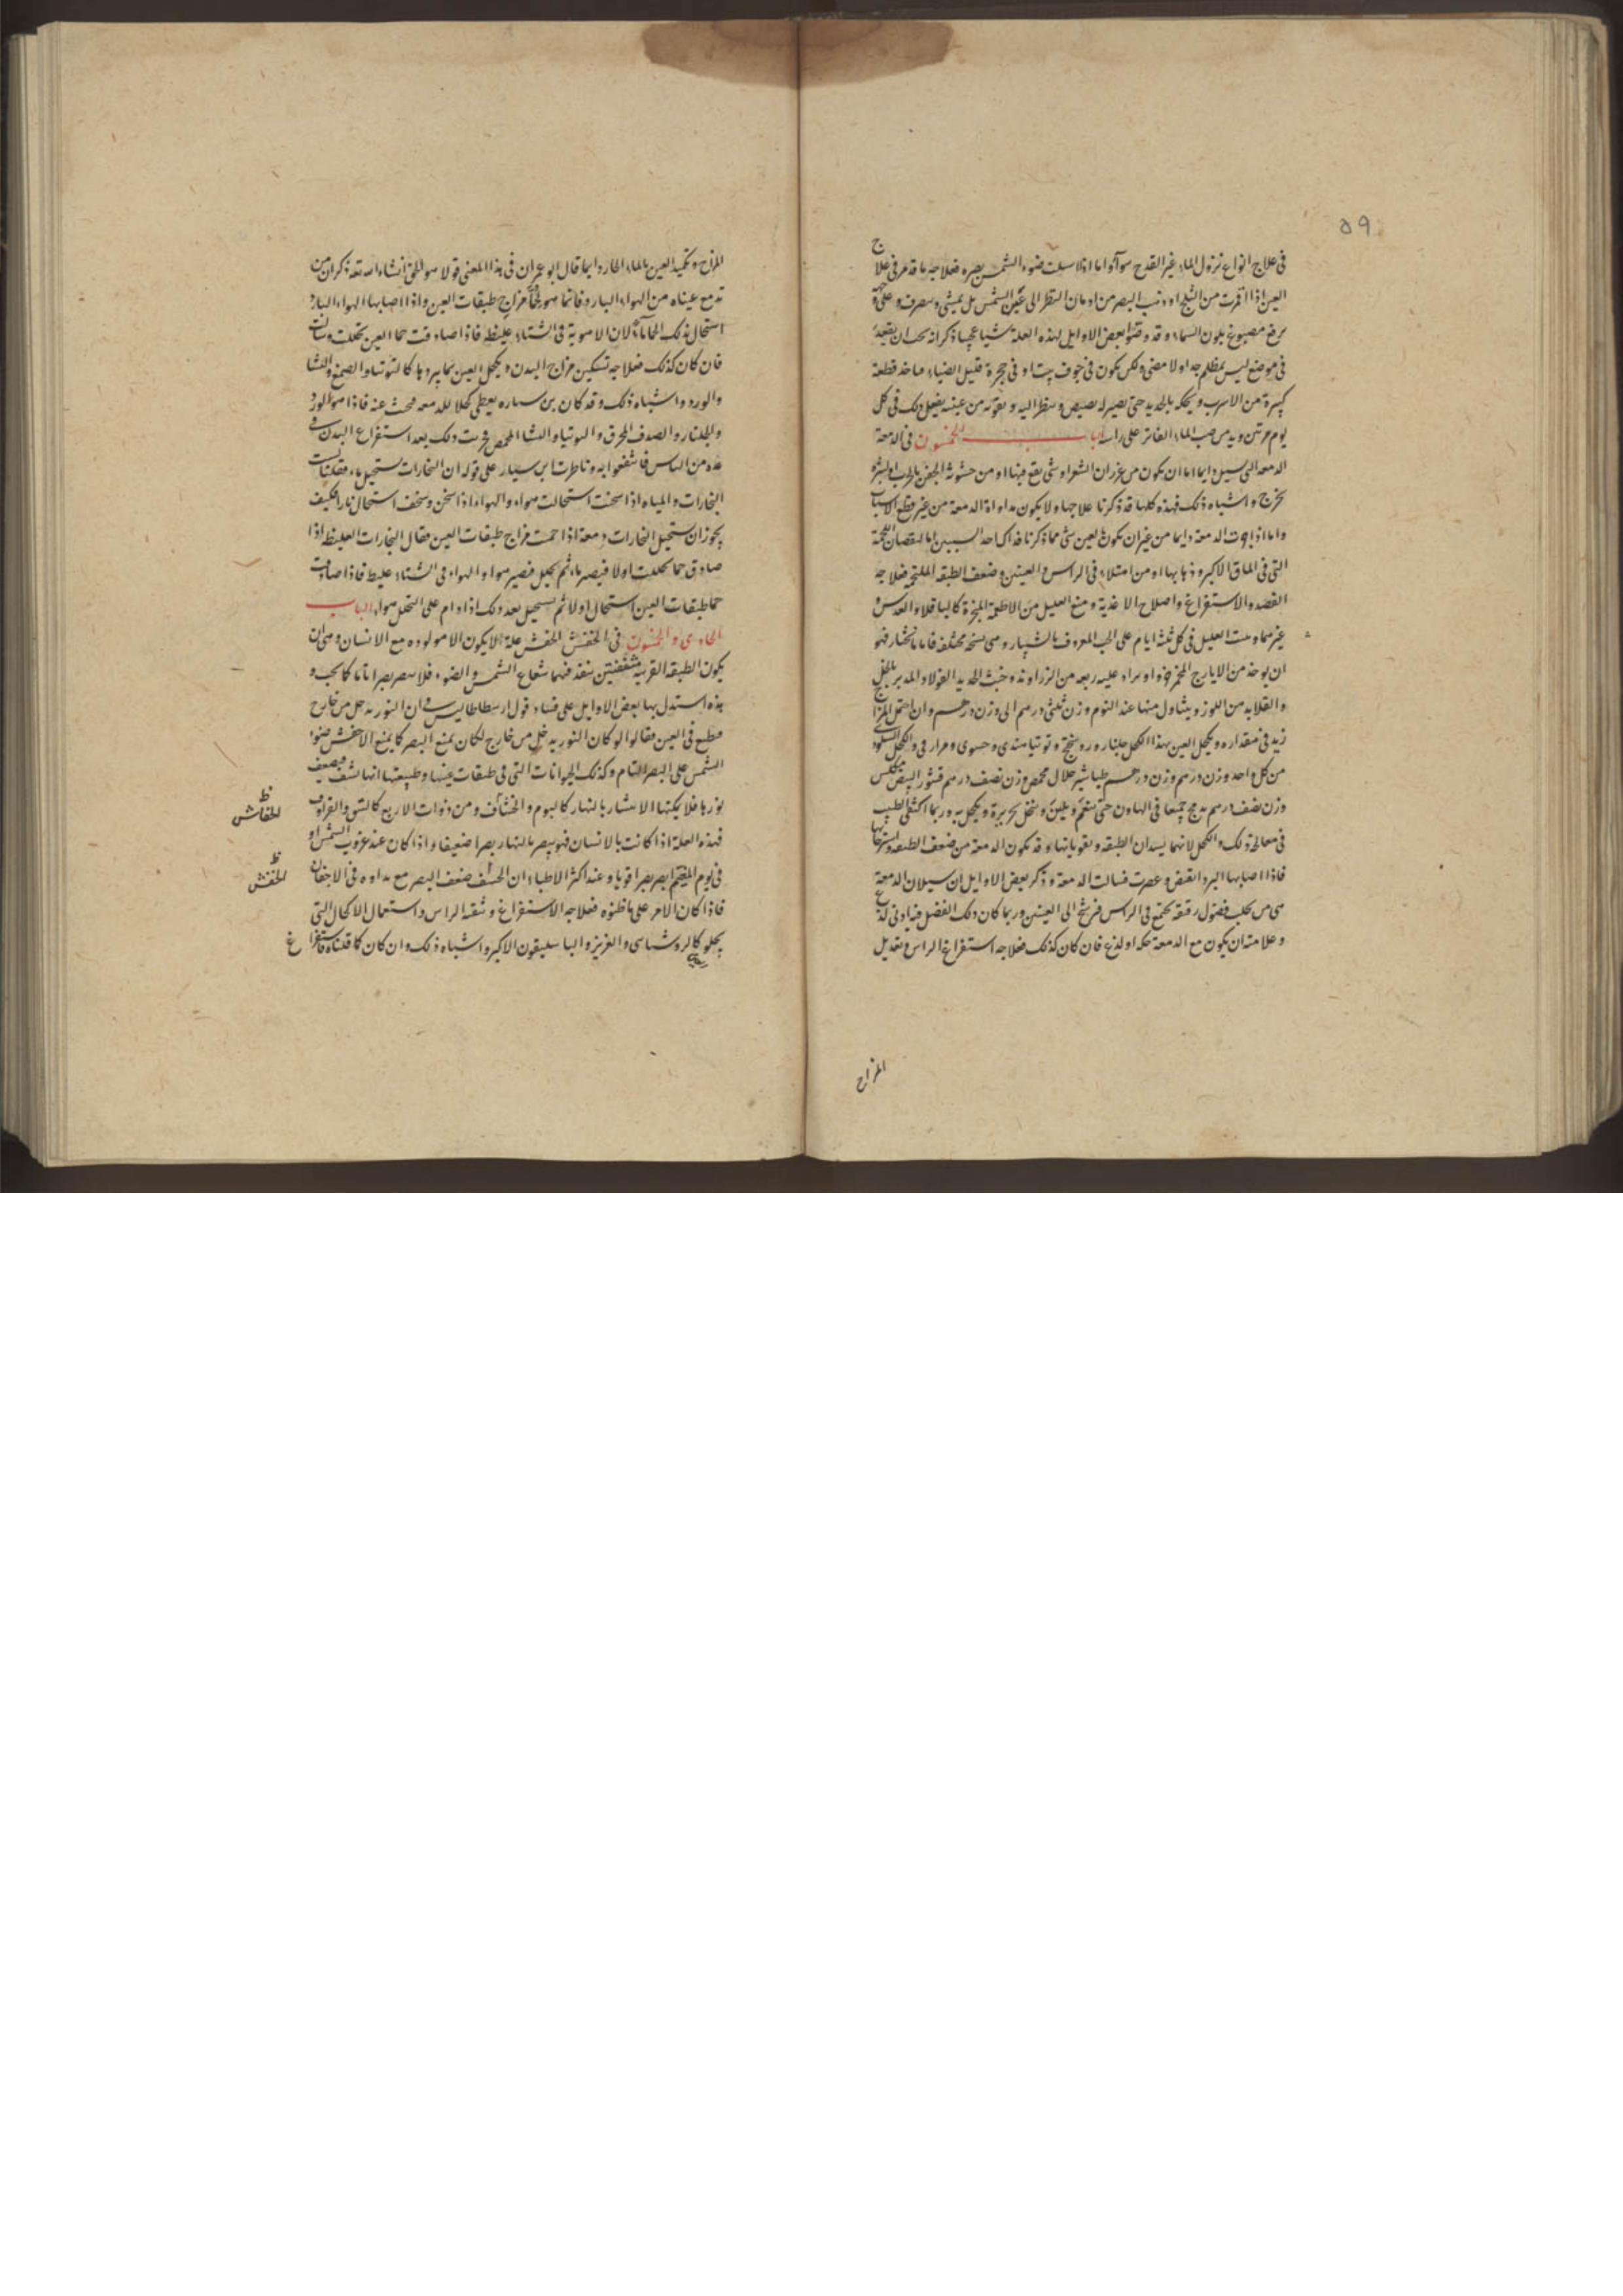 ٥٩
في علاج انواع نزول الماء غير القدح سوآء واما اذا سلت ضوء الشمس بصره فعلاجه ما قدم في علاج
العين اذا اقمرت من الثلج او ذهب البصر من ادمان النظر الى عين الشمس بل يمشي وينصرف وعلى وجهه
خرقة مصبوغ بلون السماء وقد وصف بعض الاوايل لهذه العلة شيا عجيبا ذكر انه يجب ان يقعد
في موضع ليس بمظلم جدا ولا مضي ولكن يكون في جوف بيت او في حجرة قليل الضياء فياخذ قطعة
كبيرة من الاسرب ويحكه بالحديد حتى يصير له بصيص وينظر اليه ويقربه من عينيه يفعل ذلك في كل
يوم مرتين ويدمن صب الماء الفاتر على راسه الباب الخمسون في الدمعة
الدمعة التي تسيل دايما اما ان يكون من غرزان الشعر او شي يقع فيها او من خشونة الجفن بالجرب او بثر
يخرج واشباه ذلك فهذه كلها قد ذكرنا علاجها ولا يكون مداواة الدمعة من غير قطع الاسباب
واما اذا الدمعة دايما من غير ان يكون بالعين شي مما ذكرنا فذاك احد السببين اما لنقصان اللحمة
التي في الماق الاكبر وذهابها او من امتلاء في الراس والعينين وضعف الطبقة الملتحمة فعلاجه
الفصد والاستفراغ واصلاح الاغذية ومنع العليل من الاطعمة المبخرة كالباقلا والعدس و
غيرهما ويبيت العليل في كل ثلثة ايام على الحب المعروف بالشبيار وهي نسخ مختلفة فاما ما نختار فهو
ان يوخذ من الايارج المخمر جزء ويزاد عليه ربعه من الزراوند وخبث الحديد الفولاد المدبر بالخل
والقلابه من اللوز ويتناول منها عند النوم وزن ثلثي درهم الى وزن درهم وان احتمل المزاج
زيد في مقداره ويكحل العين بهذا الكحل جلنار وروسختج وتوتيا هندي وحسوي ومرارفي والكحل
من كل واحد وزن درهم وزن درهم طباشير حلال محمص وزن نصف درهم قشور البيض مكلس
وزن نصف درهم يدمج جميعا في الهاون حتى ينعم ويلين وينخل بحريرة ويكحل به وربما اكتفى الطبيب
في معالجة ذلك بالكحل لانهما يسدان الطبقة ويقويانها وقد يكون الدمعة من ضعف الطبقة واسترخائها
فاذا اصابها البرد انقبض وعصرت فسالت الدمعة وذكر بعض الاوايل ان سيلان الدمعة
هي من تحلب فضول رقيقة تجتمع في الراس فترشح الى العينين وربما كان ذلك الفضل فيه ادنى لذع
وعلامته ان يكون مع الدمعة حكة او لذع فان كان كذلك فعلاجه استفراغ الراس وتعديل
المزاج
المزاج وتكميد العين بالماء الحار دايما قال ابو عمران في هذا المعنى قولا هو الحق انشاء الله تعه ذكر ان من
تدمع عيناه من الهواء البارد فانما هو لحما مزاج طبقات العين واذا اصابها الهواء البارد
استحال بذلك الحما ماء لان الاهوية في الشتاء غليظة فاذا صادفت حما العين تحللت وسالت
فان كان كذلك فعلاجه تسكين مزاج البدن ويكحل العين بما يبردها كالتوتيا والصمغ والنشا
والورد واشباه ذلك وقد كان بن سياره يعطي كحلا للدمعة فبحثت عنه فاذا هو الورد
والجلنار والصدف المحرق والتوتيا والنشا المحمص فجربت ذلك بعد استفراغ البدن في
عدة من الناس فانتفعوا به وناظرت ابن سيار على قوله ان البخارات تستحيل ماء فقلنا ليست
البخارات والمياه اذا سخنت استحالت هواء والهواء اذا سخن وسخف استحال نارا فكيف
يجوز ان تستحيل البخارات دمعة اذا حمت مزاج طبقات العين فقال البخارات الغليظة اذا
صادق حما تحللت اولا فيصير ماء ثم تحلل فيصير هواء والهواء في الشتاء غليظ فاذا صادفت
حما طبقات العين استحال اولا ثم يستحيل بعد ذلك اذا دام على التحلل هواء الباب
الحادي والخمسون في الخفش الخفش علة لا يكون الا مولوده مع الانسان وهي ان
يكون الطبقة القرنية شفيفتين ينفذ فيهما شعاع الشمس والضوء فلا يبصر بصرا تاما كما يجب و
بهذه استدل بها بعض الاوايل على فساد قول ارسطاطاليس في ان النور يدخل من خارج
فيطبع في العين فقالوا لو كان النور يدخل من خارج لكان يمنع البصر كما يمنع الاخفش ضوء
الشمس على البصر التام وكذلك الحيوانات التي في طبقات عينها وطبيعتها انها تشف فيضعف
نورها فلا يمكنها الانتشار بالنهار كالبوم والخشاف ومن ذوات الاربع كالنمس والقراد
فهذه العلة اذا كانت بالانسان فهو يبصر بالنهار بصرا ضعيفا واذا كان عند غروب الشمس او
في يوم الغيم ابصر بصرا قويا وعند اكثر الاطباء ان الخسف ضعف البصر مع مداوه في الاجفان
فاذا كان الامر على ما ظنوه فعلاجه الاستفراغ وتنقية الراس واستعمال الاكحال التي
يجلو كالروشناي والعزيز والباسليقون الاكبر واشباه ذلك وان كان كما قلناه فاستفراغ
ظ
الخفاش
ظ
الخفش